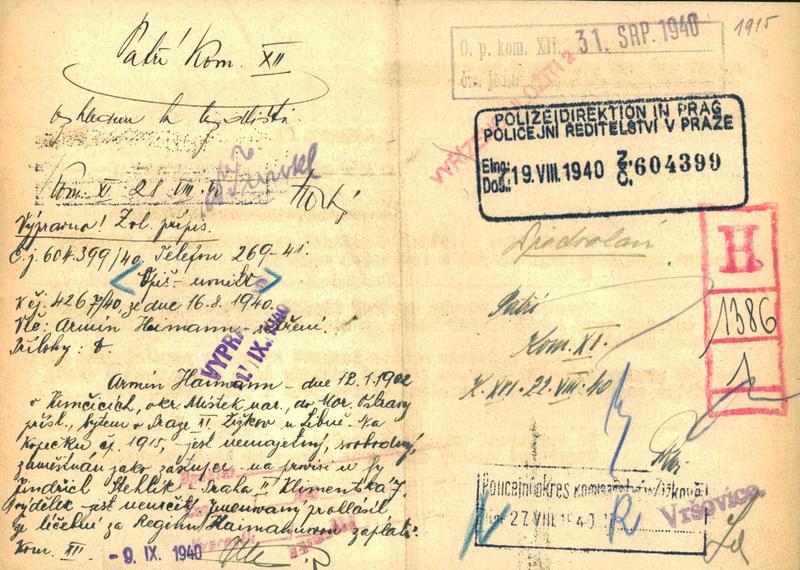 Patří Kom. XII
vyhledem k bydlišti.
Kom. XI 28 VIII 40
Výpravno! Zvl. přípis.
Č.j. 604.399/40. Telefon 269-41.
Opis - uvnitř
K čj. 4267/40 ze dne 16.8.1940.
Věc: Armin Haimann - šetření.
Přílohy: 8.
Armin Haimann - dne 12.1.1902
v Kunčicích, okr. Místek nar., do Mor. Ostravy
přísl., bytem v Praze XI. Žižkov u Libně. Na
Kopečku čp. 1915, - jest nemajetný, svobodný,
zaměstnán jako zástupce na provisi u fy
Jindřich Stehlík Praha II Klimentská 7.
Výdělek - jest neurčitý. Jmenovaný prohlásil
že léčebné za Reginu Haimannovou zaplatí.
Kom. XII.
- 9. IX. 1940
VYPR.
IX. 1940
1915
O. p. kom. XII. 31. SRP. 1940
čís. jedn.
POLIZEIDIREKTION IN PRAG
POLICEJNÍ ŘEDITELSTVÍ V PRAZE
Eing.: Doš.: 19. VIII. 1940 Z. Č. 604399
Předvolání
H
1386
1
Patří
Kom. XI.
K. XII - 22. VIII. 40
Policejní okres Komisařství Žižkově
27 VIII 1940
R
Vršovice.